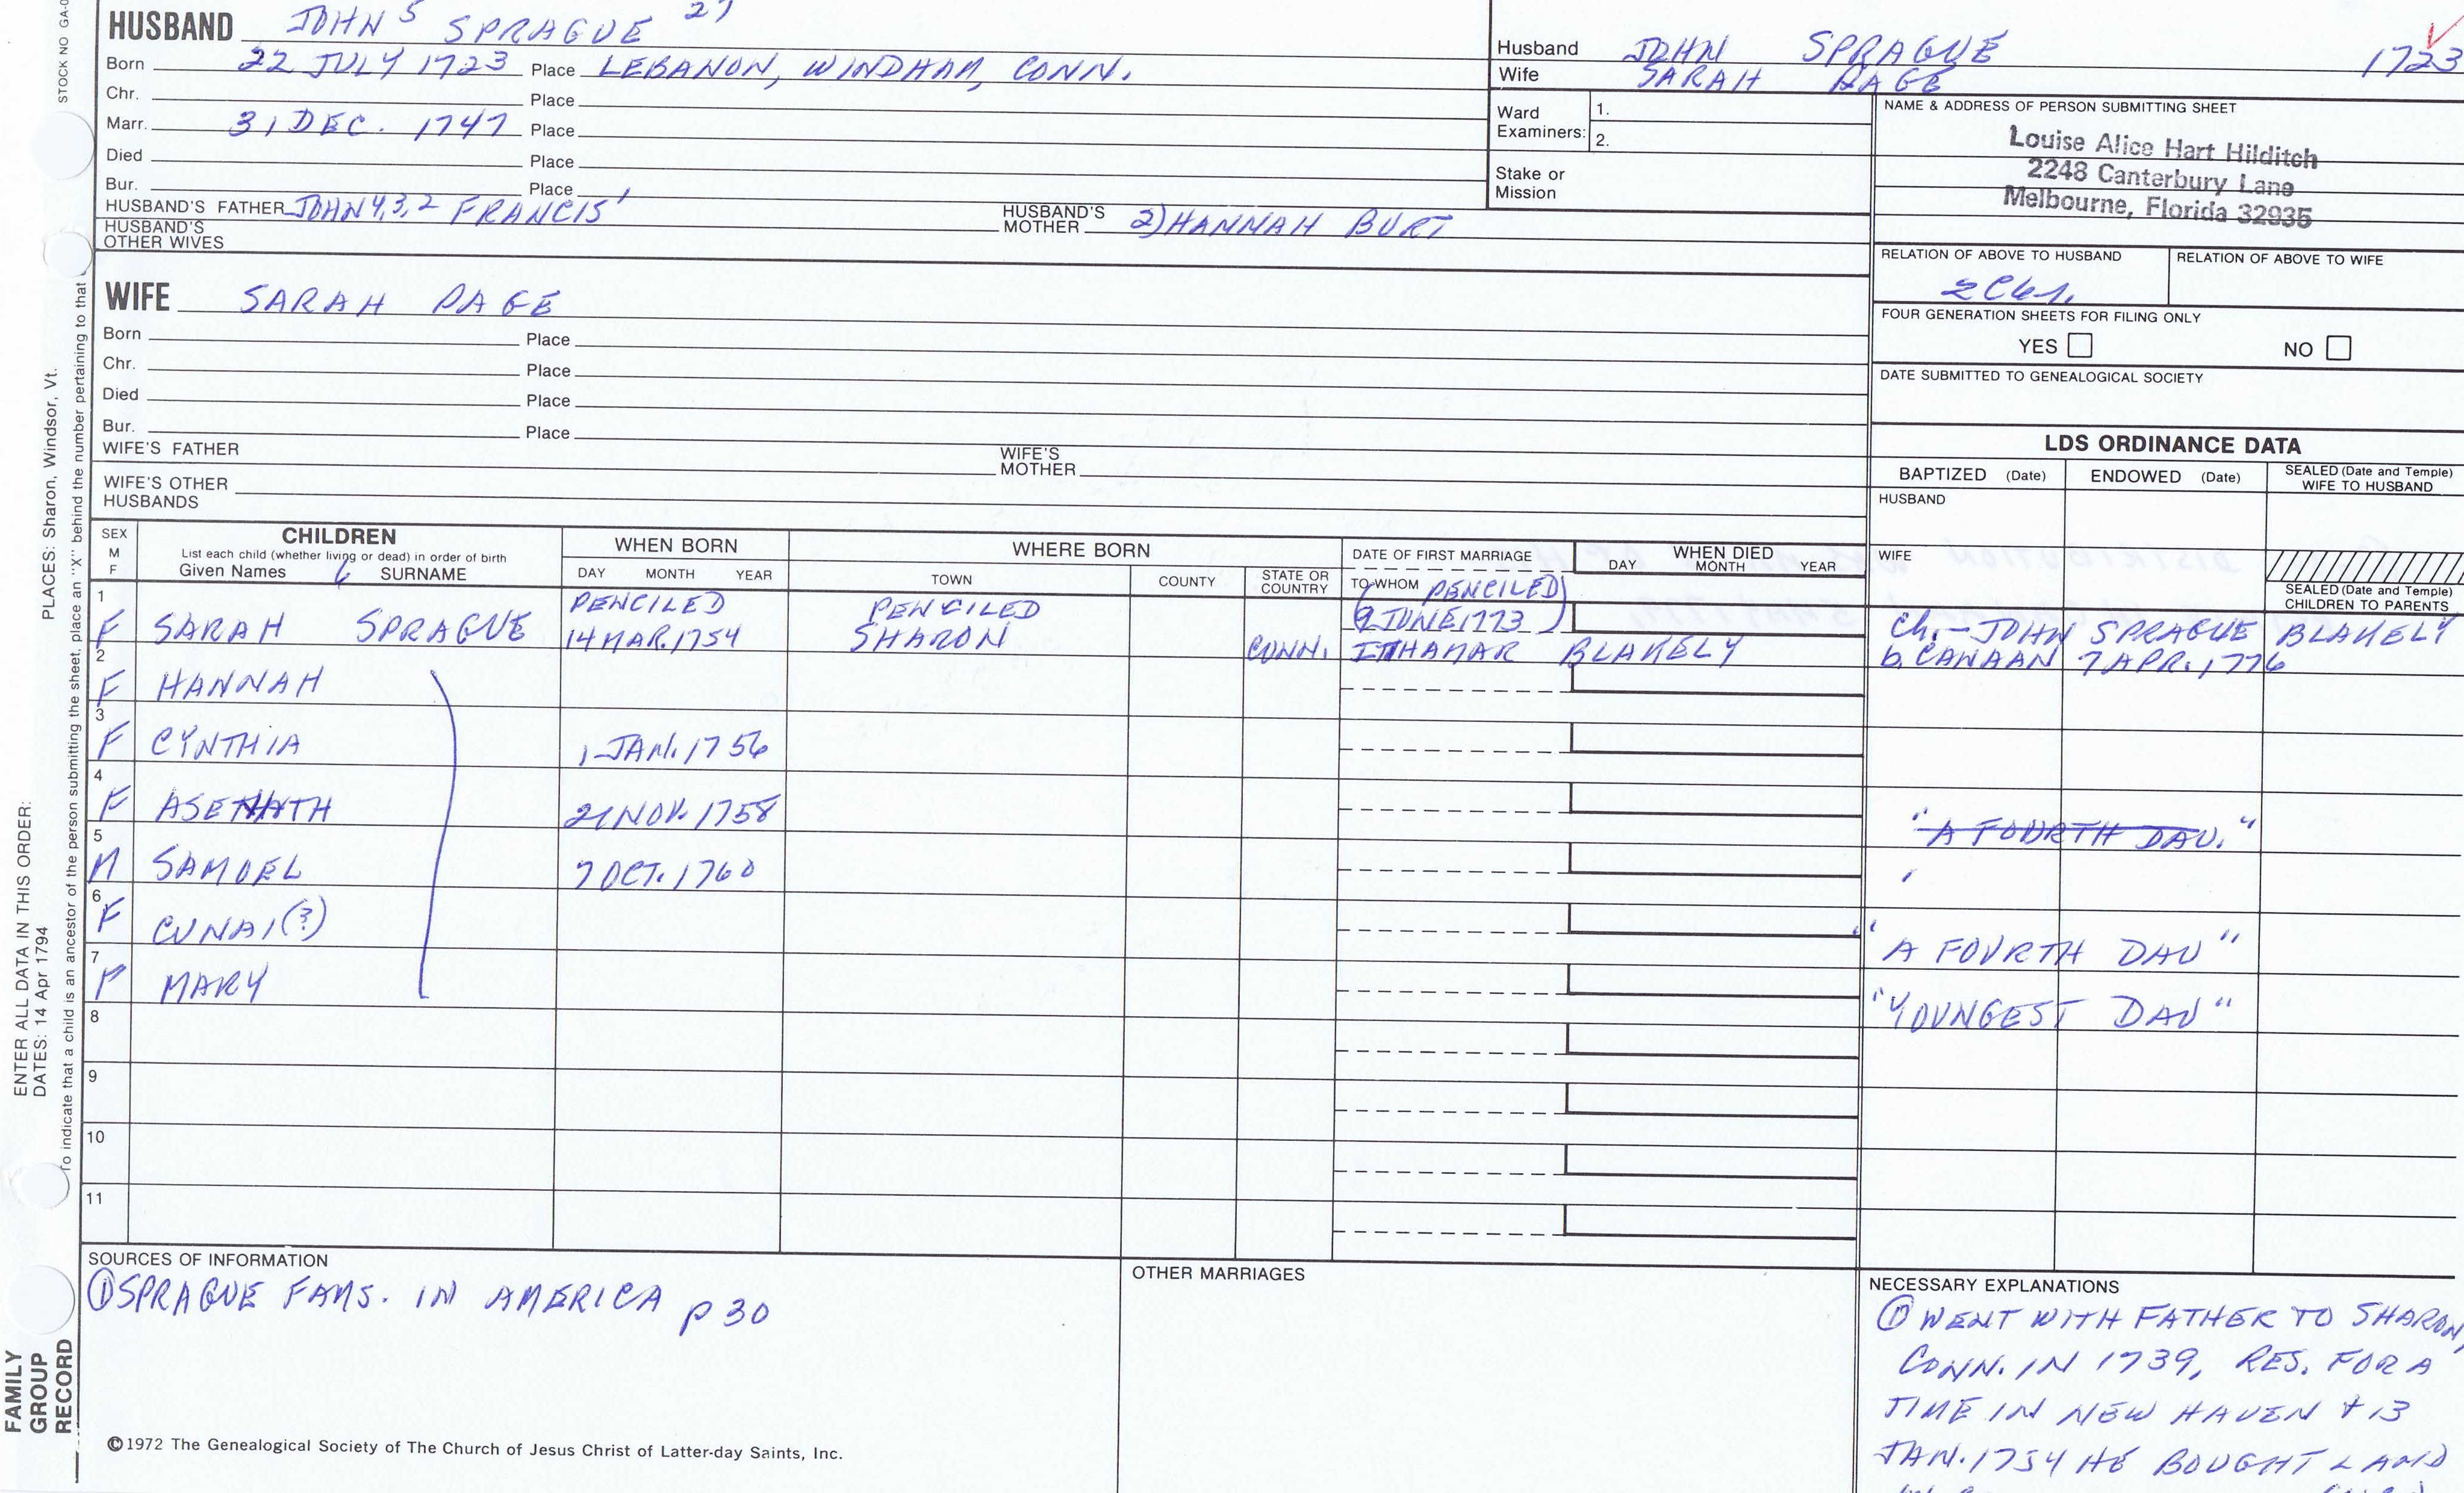 STOCK NO GA-0
HUSBAND JOHN 5 SPRAGUE 27
Born 22 JULY 1723 Place LEBANON, WINDHAM, CONN.
Chr. Place
Marr. 31 DEC. 1747 Place
Died Place
Bur. Place
HUSBAND'S FATHER JOHN 4,3,2 FRANCIS 1 HUSBAND'S MOTHER 2) HANNAH BURT
HUSBAND'S OTHER WIVES
Husband JOHN SPRAGUE 1723
Wife SARAH PAGE
Ward Examiners: 1.
2.
Stake or Mission
NAME & ADDRESS OF PERSON SUBMITTING SHEET
Louise Alice Hart Hilditch
2248 Canterbury Lane
Melbourne, Florida 32935
RELATION OF ABOVE TO HUSBAND RELATION OF ABOVE TO WIFE
FOUR GENERATION SHEETS FOR FILING ONLY
YES NO
DATE SUBMITTED TO GENEALOGICAL SOCIETY
WIFE SARAH PAGE
Born Place
Chr. Place
Died Place
Bur. Place
WIFE'S FATHER WIFE'S MOTHER
WIFE'S OTHER HUSBANDS
LDS ORDINANCE DATA
BAPTIZED (Date) ENDOWED (Date) SEALED (Date and Temple) WIFE TO HUSBAND
HUSBAND
WIFE
SEALED (Date and Temple) CHILDREN TO PARENTS
SEX M F
CHILDREN
List each child (whether living or dead) in order of birth
Given Names SURNAME
WHEN BORN
DAY MONTH YEAR
WHERE BORN
TOWN COUNTY STATE OR COUNTRY
DATE OF FIRST MARRIAGE
TO WHOM
WHEN DIED
DAY MONTH YEAR
PENCILED PENCILED (PENCILED)
1 F SARAH SPRAGUE 14 MAR. 1754 SHARON CONN. (9 JUNE 1773) ITHAMAR BLAKELY
Ch. - JOHN SPRAGUE BLAKELY
b. CANAAN 7 APR. 1776
2 F HANNAH
3 F CYNTHIA 1 JAN. 1756
4 F ASENATH 21 NOV. 1758 "A FOURTH DAU."
5 M SAMUEL 7 OCT. 1760
6 F CUNAI(?) "A FOURTH DAU"
7 F MARY "YOUNGEST DAU"
8
9
10
11
SOURCES OF INFORMATION
① SPRAGUE FAMS. IN AMERICA p 30
OTHER MARRIAGES
NECESSARY EXPLANATIONS
① WENT WITH FATHER TO SHARON,
CONN. IN 1739, RES. FOR A
TIME IN NEW HAVEN + 13
JAN. 1754 HE BOUGHT LAND
©1972 The Genealogical Society of The Church of Jesus Christ of Latter-day Saints, Inc.
FAMILY GROUP RECORD
ENTER ALL DATA IN THIS ORDER:
DATES: 14 Apr 1794
PLACES: Sharon, Windsor, Vt.
To indicate that a child is an ancestor of the person submitting the sheet, place an "X" behind the number pertaining to that